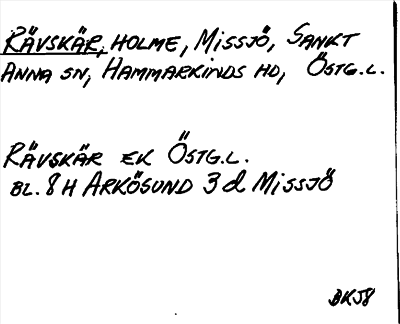 RÄVSKÄR, HOLME, MISSJÖ, SANKT
ANNA SN, HAMMARKINDS HD, ÖSTG.L.
RÄVSKÄR EK ÖSTG.L.
BL. 8 H ARKÖSUND 3 d MISSJÖ
BKJ8